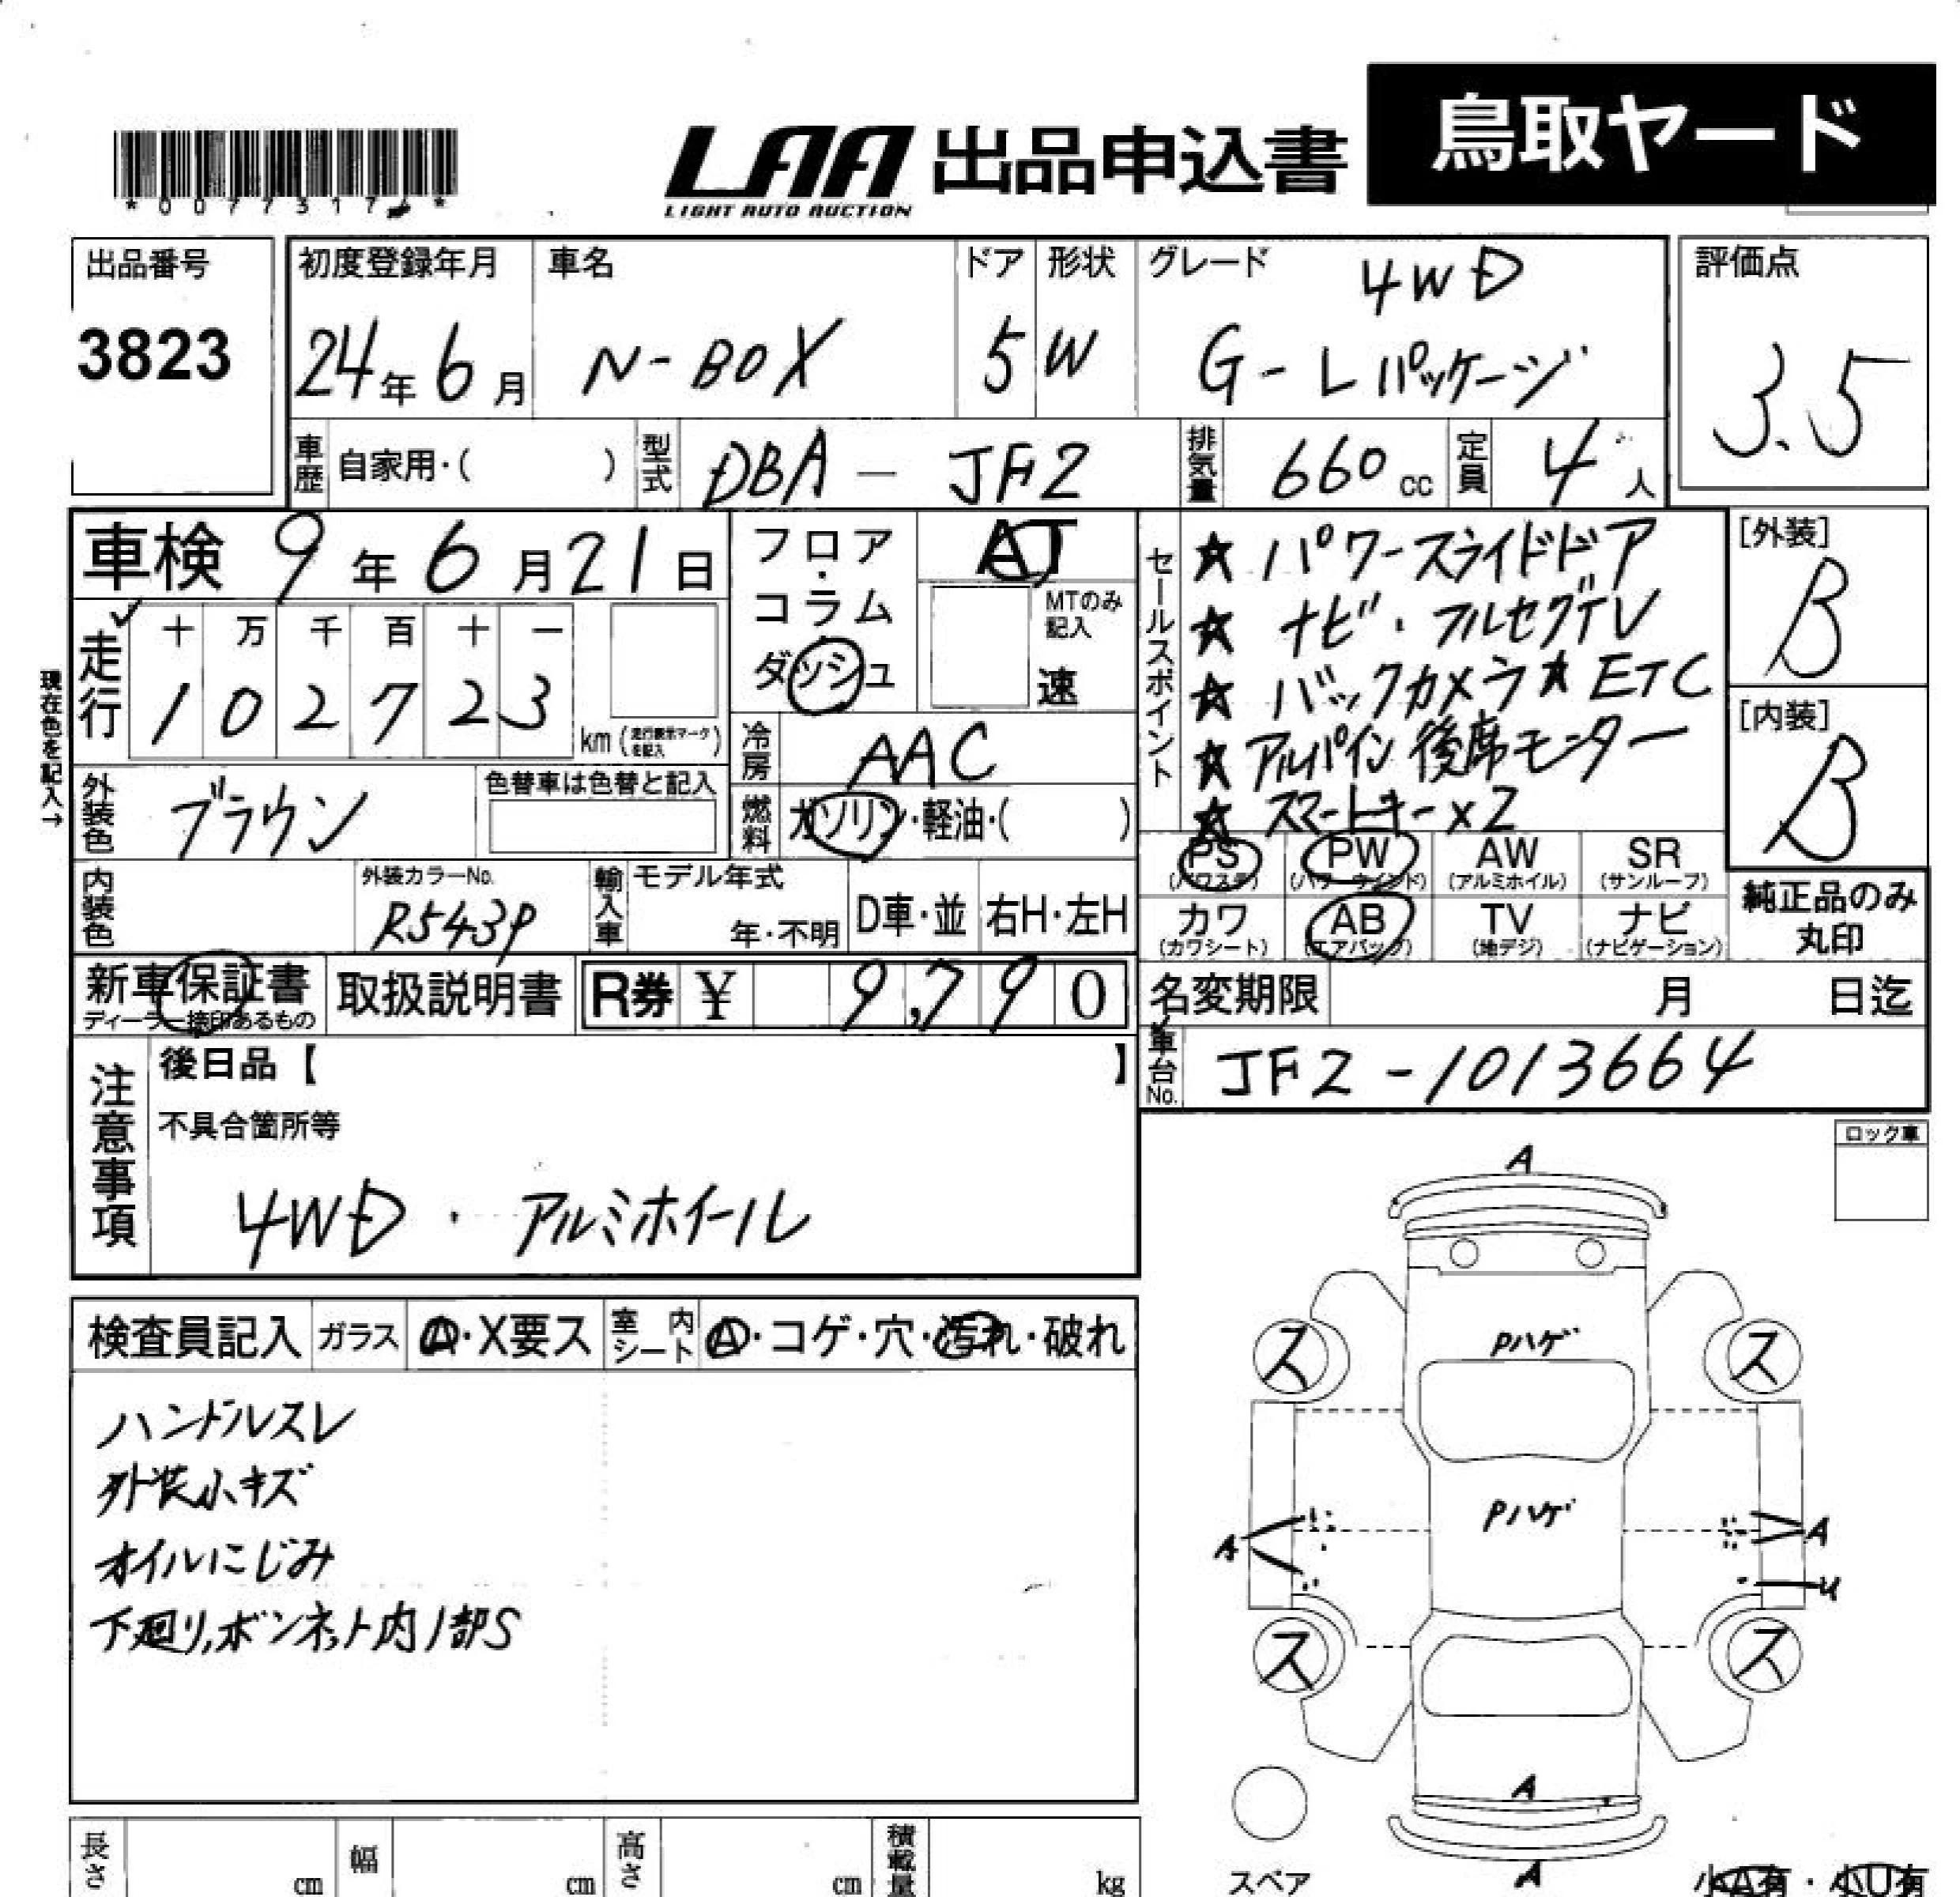 鳥取ヤード
LAA 出品申込書
LIGHT AUTO AUCTION
出品番号
3823
初度登録年月
24年6月
車名
N-BOX
ドア
5
形状
W
グレード
4WD
G-Lパッケージ
評価点
3.5
車歴 自家用・( )
型式 DBA-JF2
排気量 660cc
定員 4人
車検 9年6月21日
フロア・コラム
ダッシュ
AT
MTのみ記入
速
現在色を記入→
走行
十 万 千 百 十 一
1 0 2 7 2 3
km (走行表示マークを記入)
冷房 AAC
燃料 ガソリン・軽油・( )
外装色 ブラウン
色替車は色替と記入
内装色
外装カラーNo.
R543P
輸入車
モデル年式
年・不明
D車・並
右H・左H
セールスポイント
★ パワースライドドア
★ ナビ・フルセグTV
★ バックカメラ★ETC
★ アルパイン後席モニター
★ スマートキー×2
[外装]
B
[内装]
B
PS PW AW SR
(パワステ) (パワーウインド) (アルミホイル) (サンルーフ)
カワ AB TV ナビ
(カワシート) (エアバッグ) (地デジ) (ナビゲーション)
純正品のみ
丸印
新車保証書
ディーラー捺印あるもの
取扱説明書
R券 ¥ 9,790
名変期限 月 日迄
車台No. JF2-1013664
注意事項
後日品【 】
不具合箇所等
4WD・アルミホイール
検査員記入
ガラス A・X要ス
室内シート A・コゲ・穴・汚れ・破れ
ハンドルスレ
外装小キズ
オイルにじみ
下廻り,ボンネット内1部S
ロック車
A
Pハゲ
ス ス
Pハゲ
A A
U
ス ス
A
A
スペア
小A有・小U有
長さ cm
幅 cm
高さ cm
積載量 kg